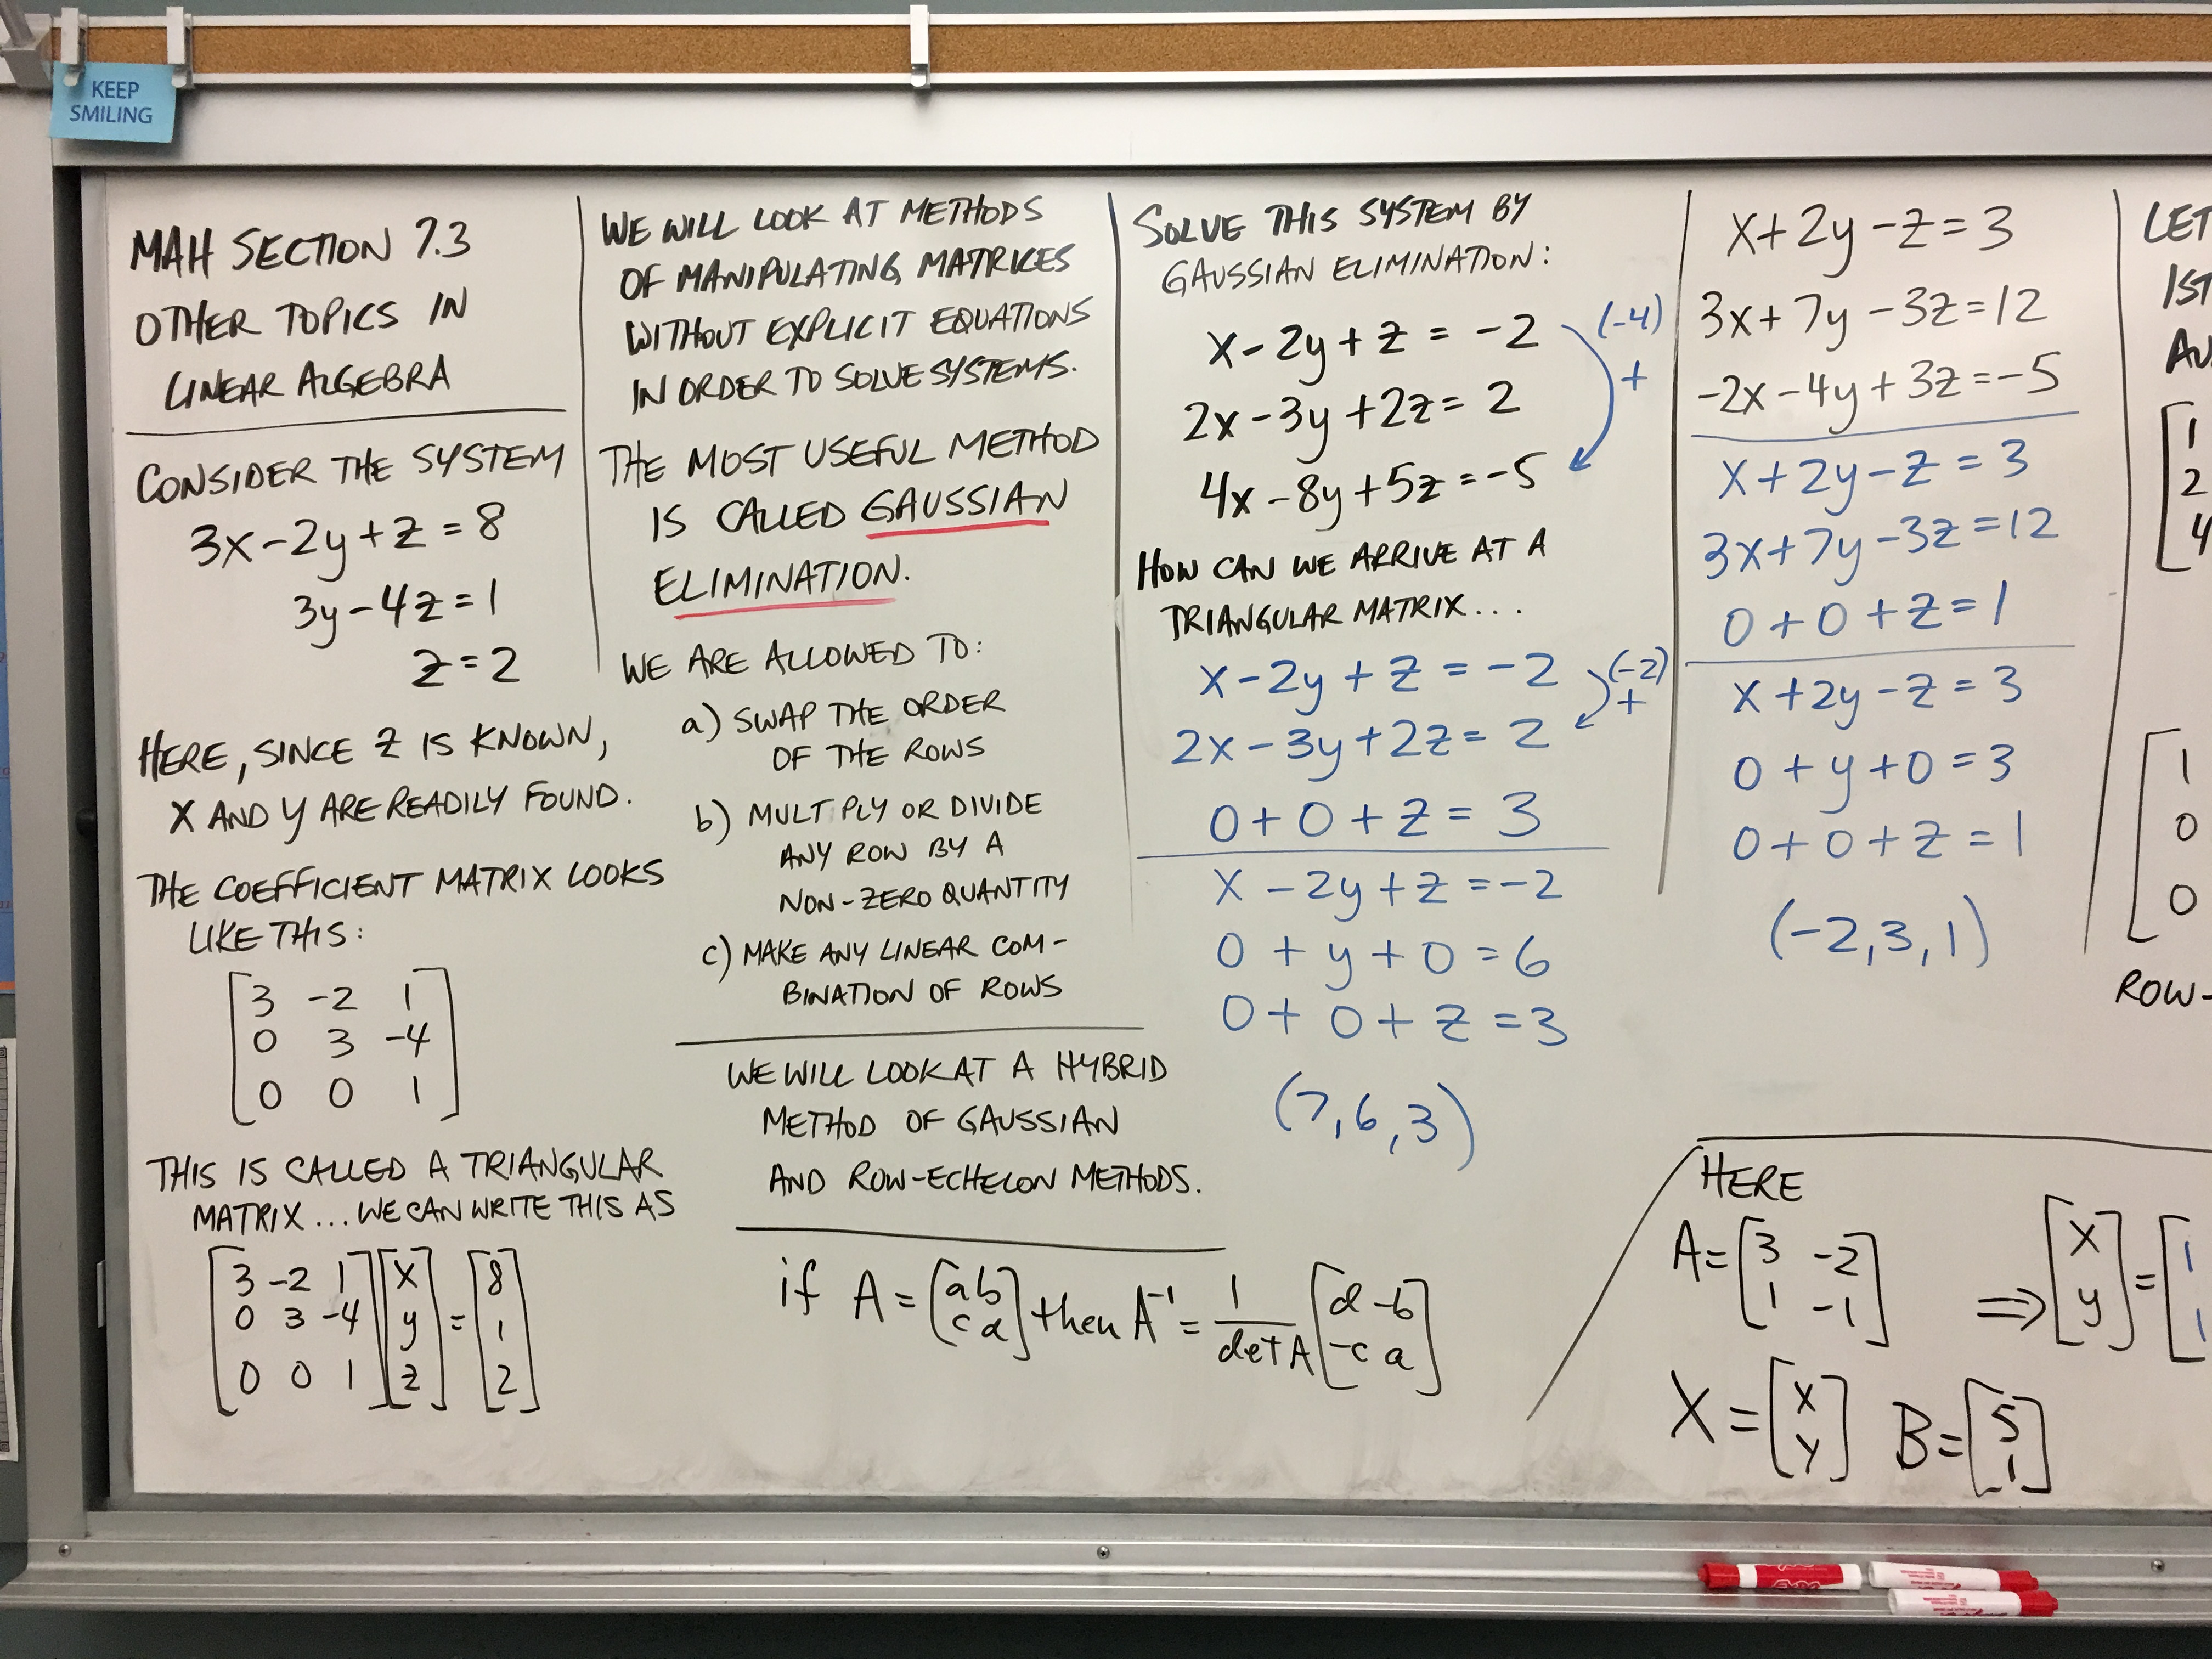 KEEP
SMILING
MAH SECTION 7.3
OTHER TOPICS IN
LINEAR ALGEBRA
CONSIDER THE SYSTEM
3x-2y+z=8
3y-4z=1
z=2
HERE, SINCE Z IS KNOWN,
X AND Y ARE READILY FOUND.
THE COEFFICIENT MATRIX LOOKS
LIKE THIS:
3 -2 1
0 3 -4
0 0 1
THIS IS CALLED A TRIANGULAR
MATRIX... WE CAN WRITE THIS AS
[3 -2 1] [x] [8]
[0 3 -4] [y] = [1]
[0 0 1] [z] [2]
WE WILL LOOK AT METHODS
OF MANIPULATING MATRICES
WITHOUT EXPLICIT EQUATIONS
IN ORDER TO SOLVE SYSTEMS.
THE MOST USEFUL METHOD
IS CALLED GAUSSIAN
ELIMINATION.
WE ARE ALLOWED TO:
a) SWAP THE ORDER
OF THE ROWS
b) MULT PLY OR DIVIDE
ANY ROW BY A
NON-ZERO QUANTITY
c) MAKE ANY LINEAR COM-
BINATION OF ROWS
WE WILL LOOK AT A HYBRID
METHOD OF GAUSSIAN
AND ROW-ECHELON METHODS.
if A = [a b; c d] then A⁻¹ = 1/det A [d -b; -c a]
SOLVE THIS SYSTEM BY
GAUSSIAN ELIMINATION:
x-2y+z = -2 (-4)
2x-3y+2z= 2 +
4x-8y+5z=-5
HOW CAN WE ARRIVE AT A
TRIANGULAR MATRIX...
x-2y+z=-2 (-2)
2x-3y+2z=2 +
0+0+z=3
x-2y+z=-2
0+y+0=6
0+0+z=3
(7,6,3)
x+2y-z=3
3x+7y-3z=12
-2x-4y+3z=-5
x+2y-z=3
3x+7y-3z=12
0+0+z=1
x+2y-z=3
0+y+0=3
0+0+z=1
(-2,3,1)
HERE
A=[3 -2; 1 -1] ⇒ [x; y] = [1; 1
X=[x; y] B=[5; 1]
LET
1ST
1
2
4
1
0
0
ROW-